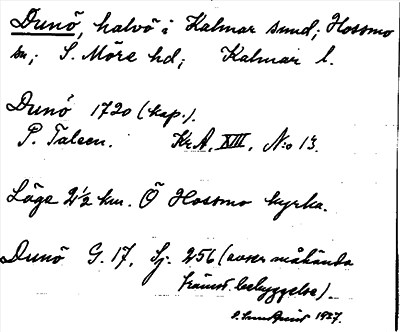 Dunö, halvö i Kalmar sund; Hossmo
sn; S. Möre hd; Kalmar l.
Dunö 1720 (kop.).
P. Taleen. KrA, XIII, N:o 13.
Läge 2 1/2 km. Ö Hossmo kyrka.
Dunö G. 17, Sj. 256 (avser måhända
främst bebyggelse).
1927.